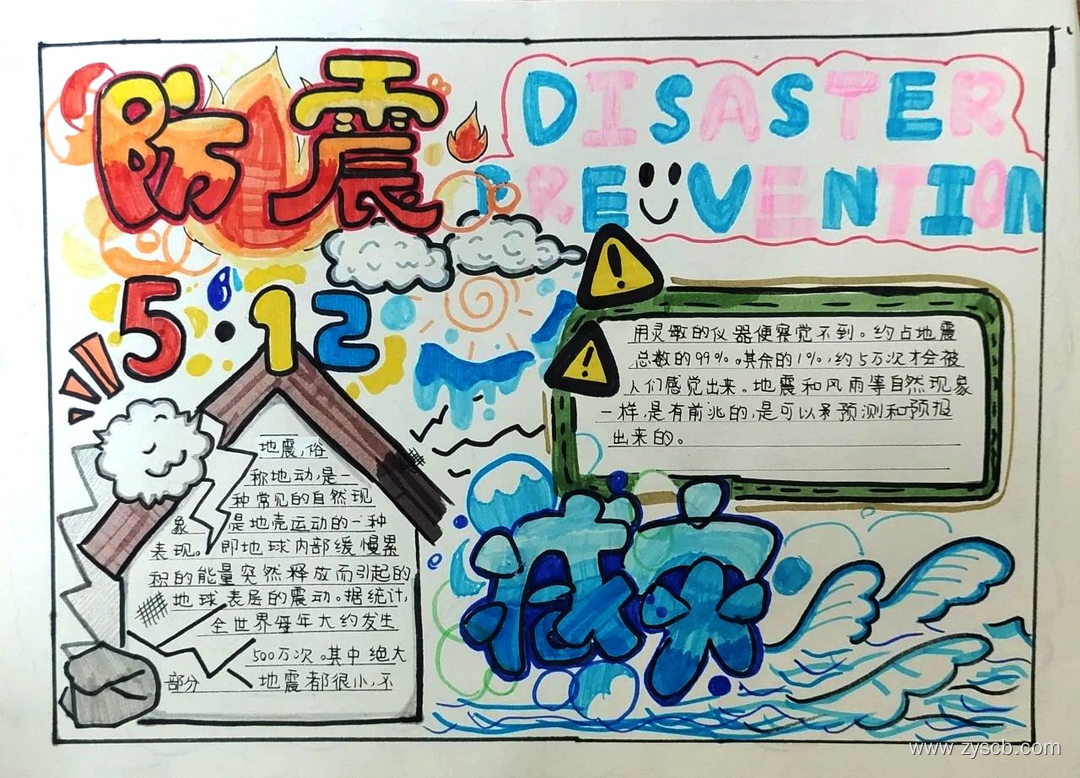 防震
DISASTER
PREVENTIION
5·12
地震,俗
称地动,是一
种常见的自然现
象 是地壳运动的一种
表现。即地球内部缓慢累
积的能量突然释放而引起的
地球表层的震动。据统计,
全世界每年大约发生
500万次。其中绝大
部分 地震都很小,不
用灵敏的仪器便察觉不到。约占地震
总数的99%。其余的1%,约5万次才会被
人们感觉出来。地震和风雨等自然现象
一样,是有前兆的,是可以预测和预报
出来的。
减灾
www.zyscb.com